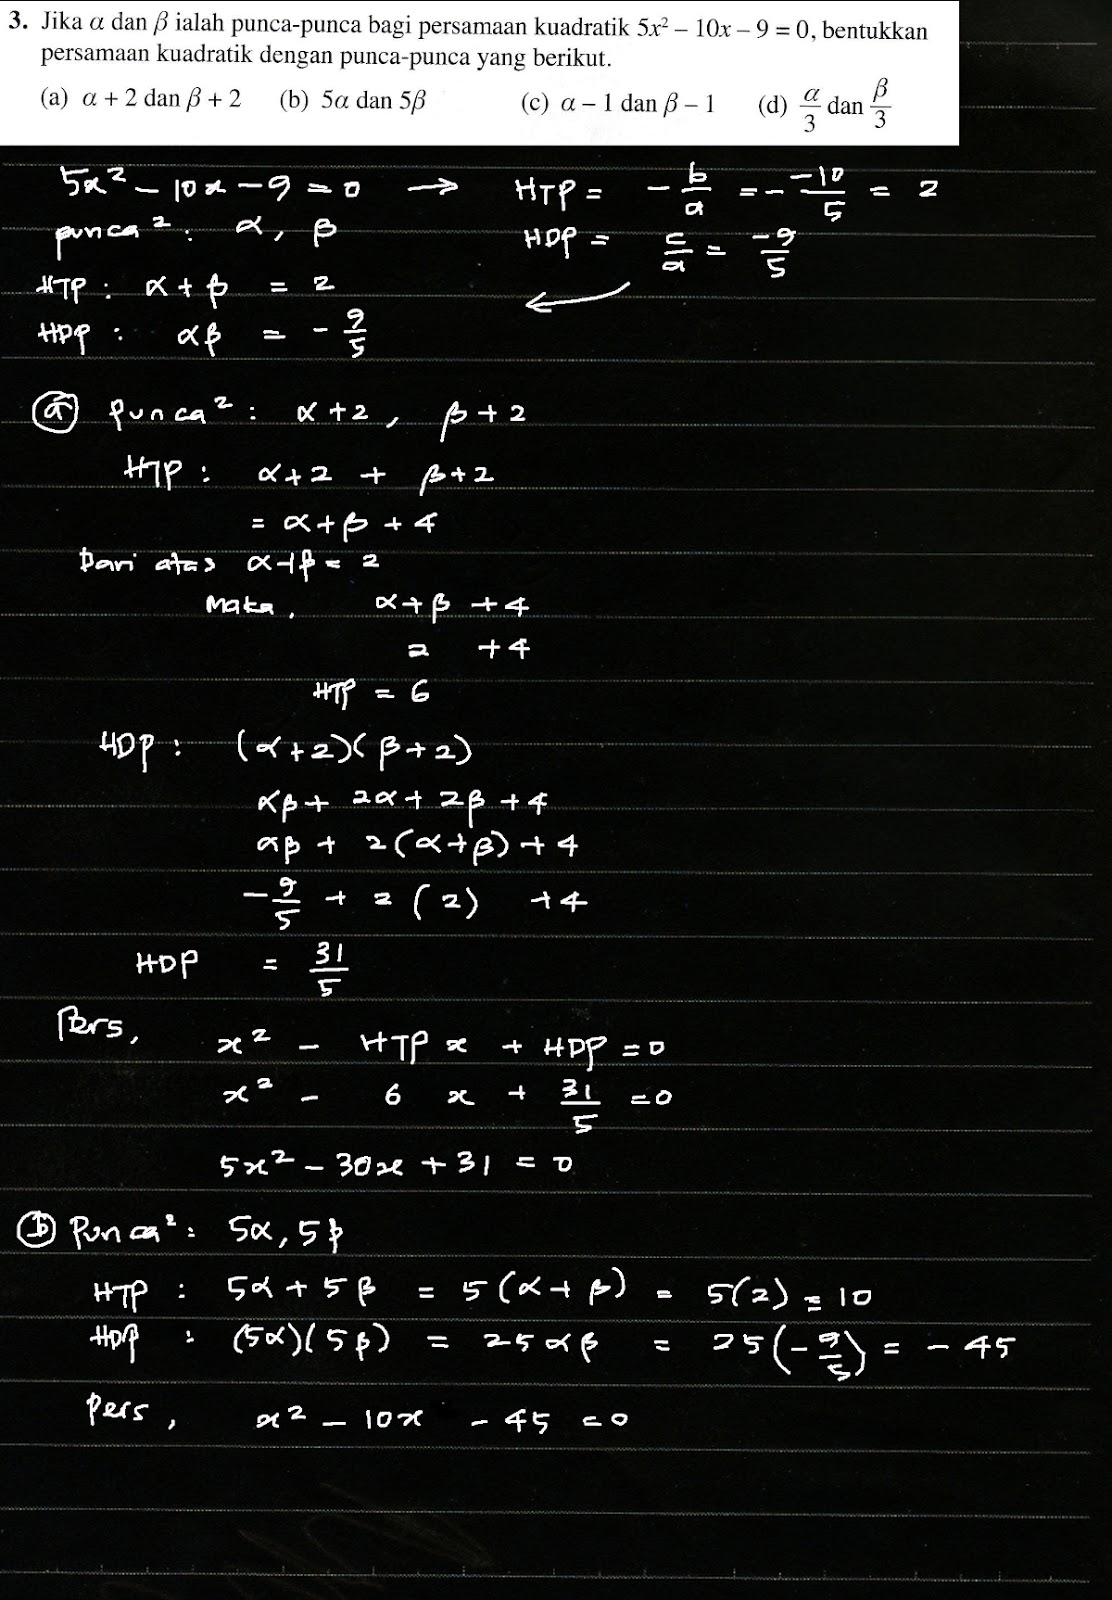 3. Jika α dan β ialah punca-punca bagi persamaan kuadratik 5x² – 10x – 9 = 0, bentukkan
persamaan kuadratik dengan punca-punca yang berikut.
(a) α + 2 dan β + 2 (b) 5α dan 5β (c) α – 1 dan β – 1 (d) α/3 dan β/3
5x² - 10x - 9 = 0 → HTP = - b/a = - -10/5 = 2
punca² : α, β HDP = c/a = -9/5
HTP : α + β = 2
HDP : αβ = - 9/5
(a) Punca² : α + 2, β + 2
HTP : α + 2 + β + 2
= α + β + 4
Dari atas α + β = 2
Maka, α + β + 4
2 + 4
HTP = 6
HDP : (α + 2)(β + 2)
αβ + 2α + 2β + 4
αβ + 2(α + β) + 4
- 9/5 + 2(2) + 4
HDP = 31/5
Pers, x² - HTP x + HDP = 0
x² - 6 x + 31/5 = 0
5x² - 30x + 31 = 0
(b) Punca² : 5α, 5β
HTP : 5α + 5β = 5(α + β) = 5(2) = 10
HDP : (5α)(5β) = 25αβ = 25(- 9/5) = - 45
Pers, x² - 10x - 45 = 0